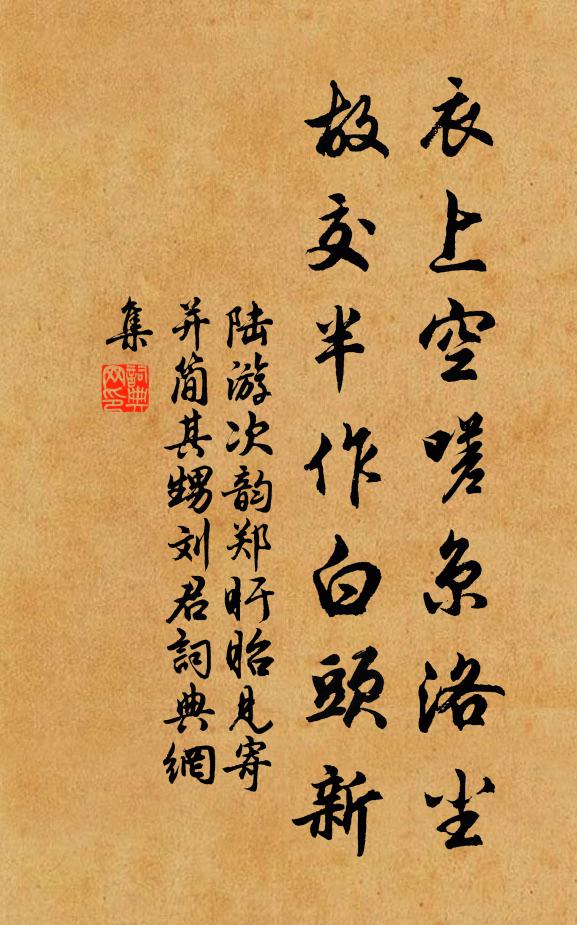 衣上空嗟京洛尘
故交半作白頭新
陆游次韵郑盱眙见寄
并简其甥刘君詞典網
集
詞典
网印